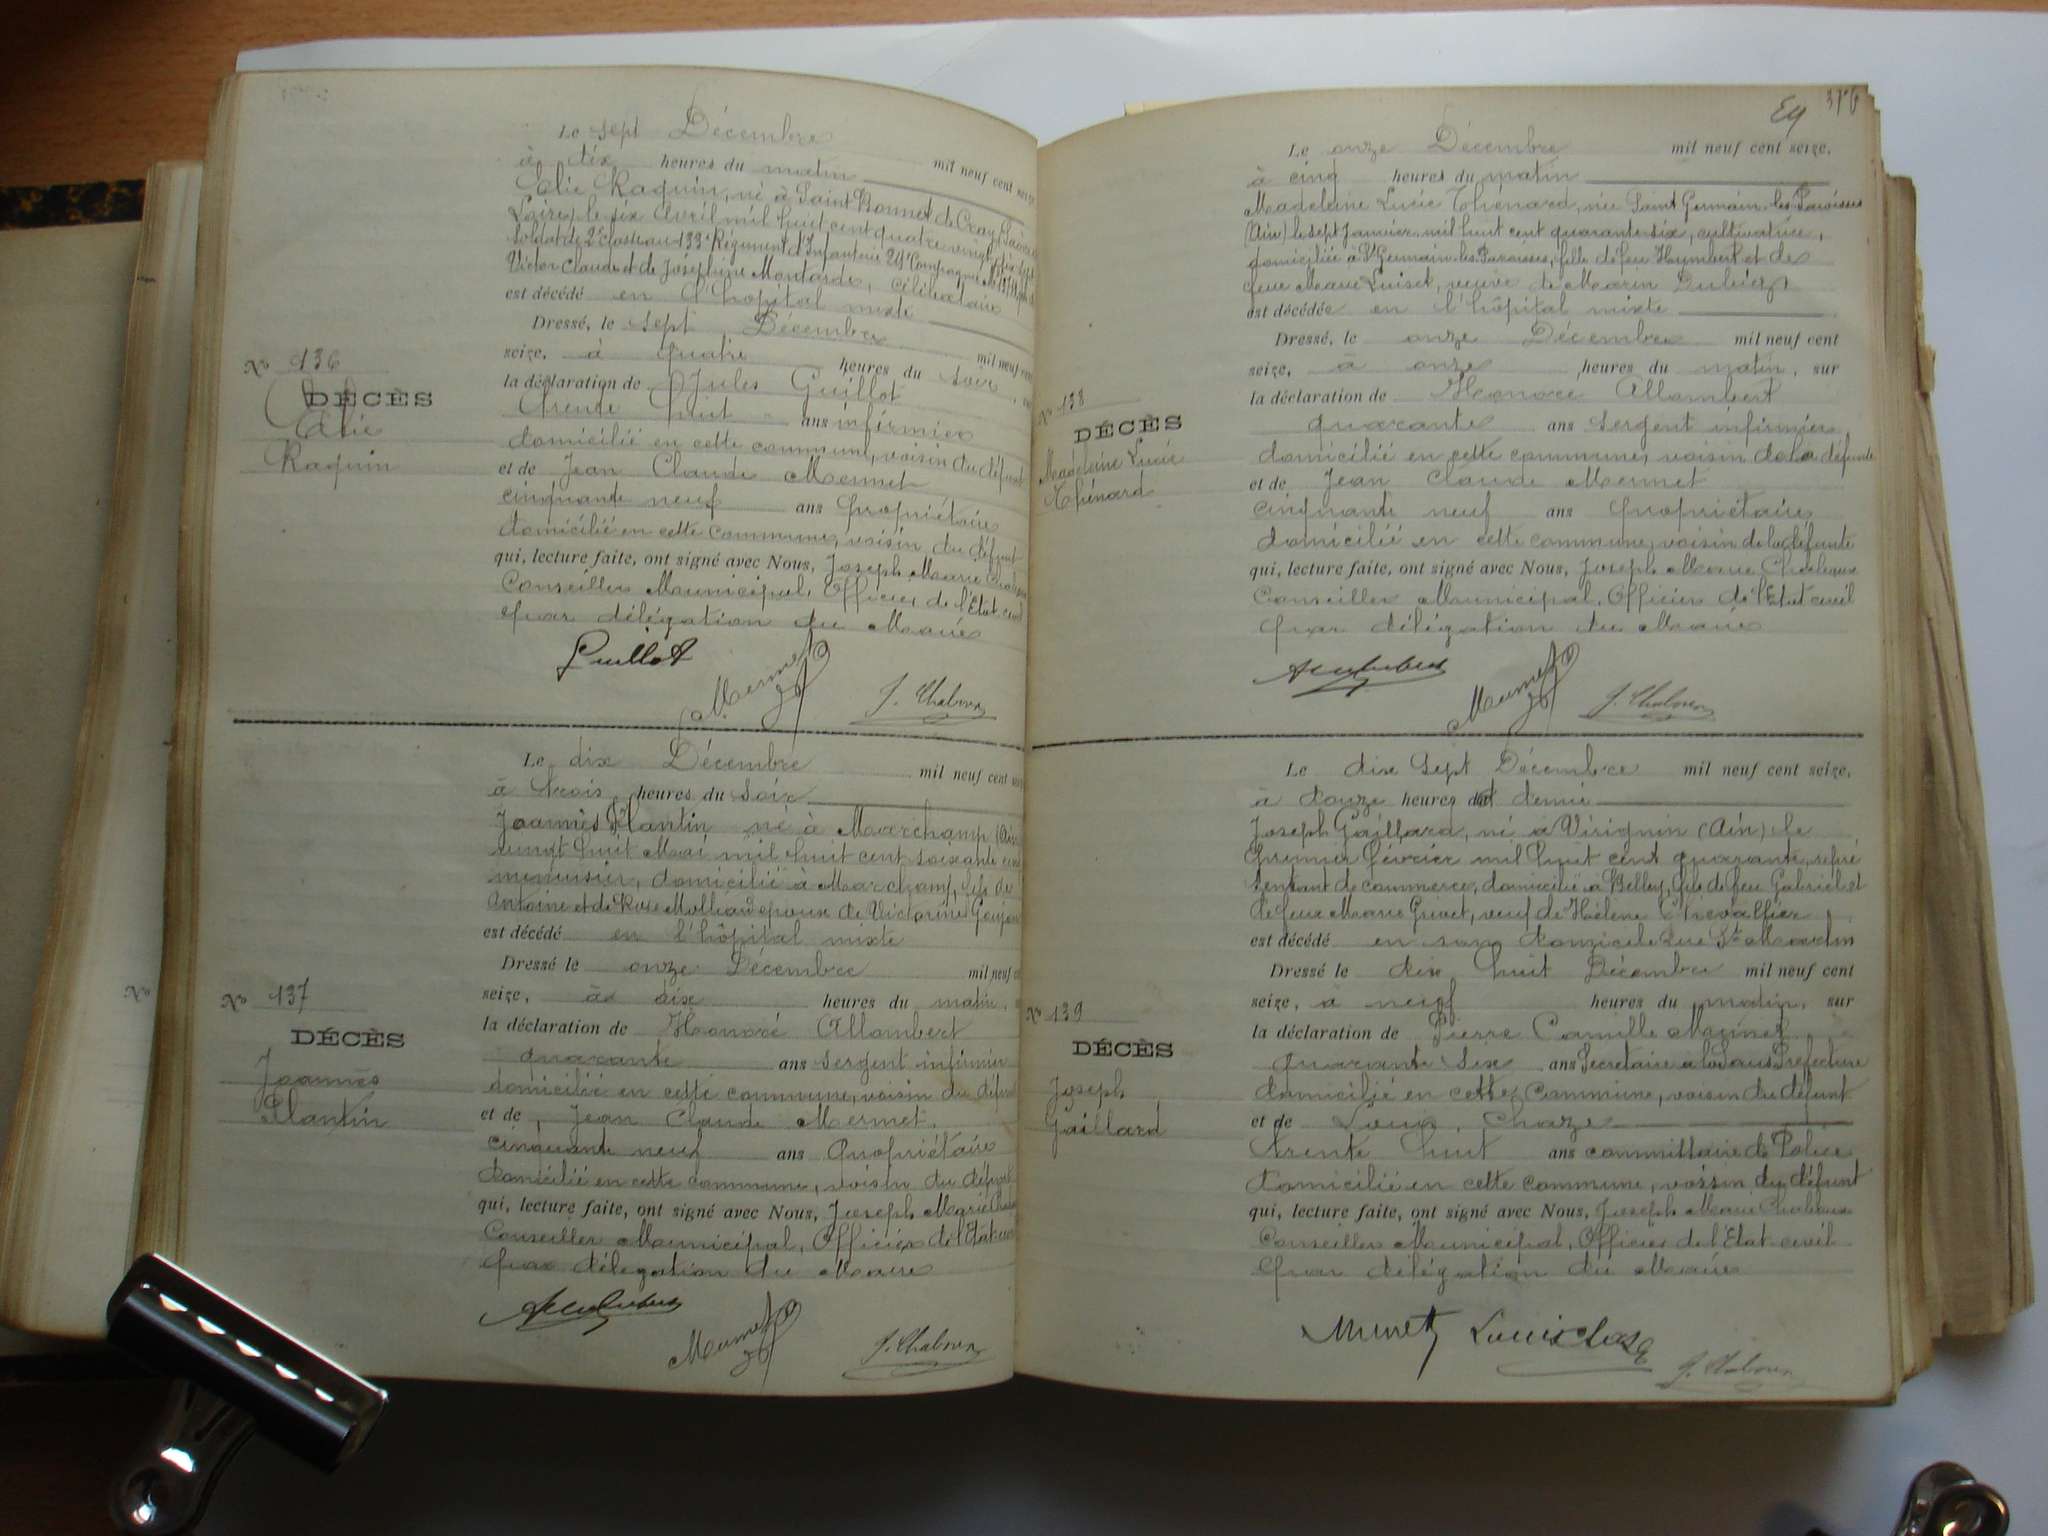 Le sept Décembre mil neuf cent
à dix heures du matin
Elie Raquin, né à Saint Bonnet de Cray (Saône
Loire) le six Avril mil huit cent quatre vingt
Soldat de 2e classe au 133e Régiment d'Infanterie 29e Compagnie
Victor Claude et de Joséphine Montarde, célibataire
est décédé en l'hôpital mixte
Dressé, le sept Décembre mil neuf cent
seize, à quatre heures du soir
la déclaration de Jules Guillot
trente huit ans infirmier
domicilié en cette commune, voisin du défunt
et de Jean Claude Mermet
cinquante neuf ans propriétaire
domicilié en cette commune, voisin du défunt
qui, lecture faite, ont signé avec Nous, Joseph Marie
Conseiller Municipal, Officier de l'Etat civil
par délégation du Maire
Guillot
Mermet
J. Chaboux
No 136
DÉCÈS
Elie
Raquin
Le dix Décembre mil neuf cent
à trois heures du soir
Joannès Plantin né à Marchamp (Ain
vingt huit Mai mil huit cent soixante
menuisier, domicilié à Marchamp, fils de
Antoine et de Rose époux de Victorine Goujon
est décédé en l'hôpital mixte
Dressé le onze Décembre mil neuf
seize, à dix heures du matin,
la déclaration de Honoré Allombert
quarante ans sergent infirmier
domicilié en cette commune, voisin du défunt
et de Jean Claude Mermet
cinquante neuf ans propriétaire
domicilié en cette commune, voisin du défunt
qui, lecture faite, ont signé avec Nous, Joseph Marie
Conseiller Municipal, Officier de l'Etat civil
par délégation du Maire
Mermet
J. Chaboux
No 137
DÉCÈS
Joannès
Plantin
376
Le onze Décembre mil neuf cent seize,
à cinq heures du matin
Madeleine Lucie Thénard, née Saint Germain les Paroisses
(Ain) le sept janvier mil huit cent quarante six, cultivatrice,
domiciliée à St Germain les Paroisses, fille de feu Humbert et de
feue Marie Luiset, veuve de Marin
est décédée en l'hôpital mixte
Dressé, le onze Décembre mil neuf cent
seize, à onze heures du matin, sur
la déclaration de Honoré Allombert
quarante ans sergent infirmier
domicilié en cette commune, voisin de la défunte
et de Jean Claude Mermet
cinquante neuf ans propriétaire
domicilié en cette commune, voisin de la défunte
qui, lecture faite, ont signé avec Nous, Joseph Marie Chaboux
Conseiller Municipal, Officier de l'Etat civil
par délégation du Maire
Mermet
J. Chaboux
No 138
DÉCÈS
Madeleine Lucie
Thénard
Le dix sept Décembre mil neuf cent seize,
à douze heures et demie
Joseph Gaillard, né à Virignin (Ain) le
premier février mil huit cent quarante, repré
sentant de commerce, domicilié à Belley, fils de feu Gabriel et
de feue Marie Grivet, veuf de Hélène Chevallier
est décédé en son domicile Rue St Martin
Dressé le dix huit Décembre mil neuf cent
seize, à neuf heures du matin, sur
la déclaration de Pierre Camille
quarante six ans Secrétaire à la Sous Préfecture
domicilié en cette commune, voisin du défunt
et de Louis Chaze
trente huit ans commissaire de Police
domicilié en cette commune, voisin du défunt
qui, lecture faite, ont signé avec Nous, Joseph Marie Chaboux
Conseiller Municipal, Officier de l'Etat civil
par délégation du Maire
J. Chaboux
No 139
DÉCÈS
Joseph
Gaillard